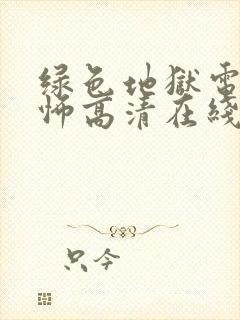 绿色地獄電
怖高清在綫
只今